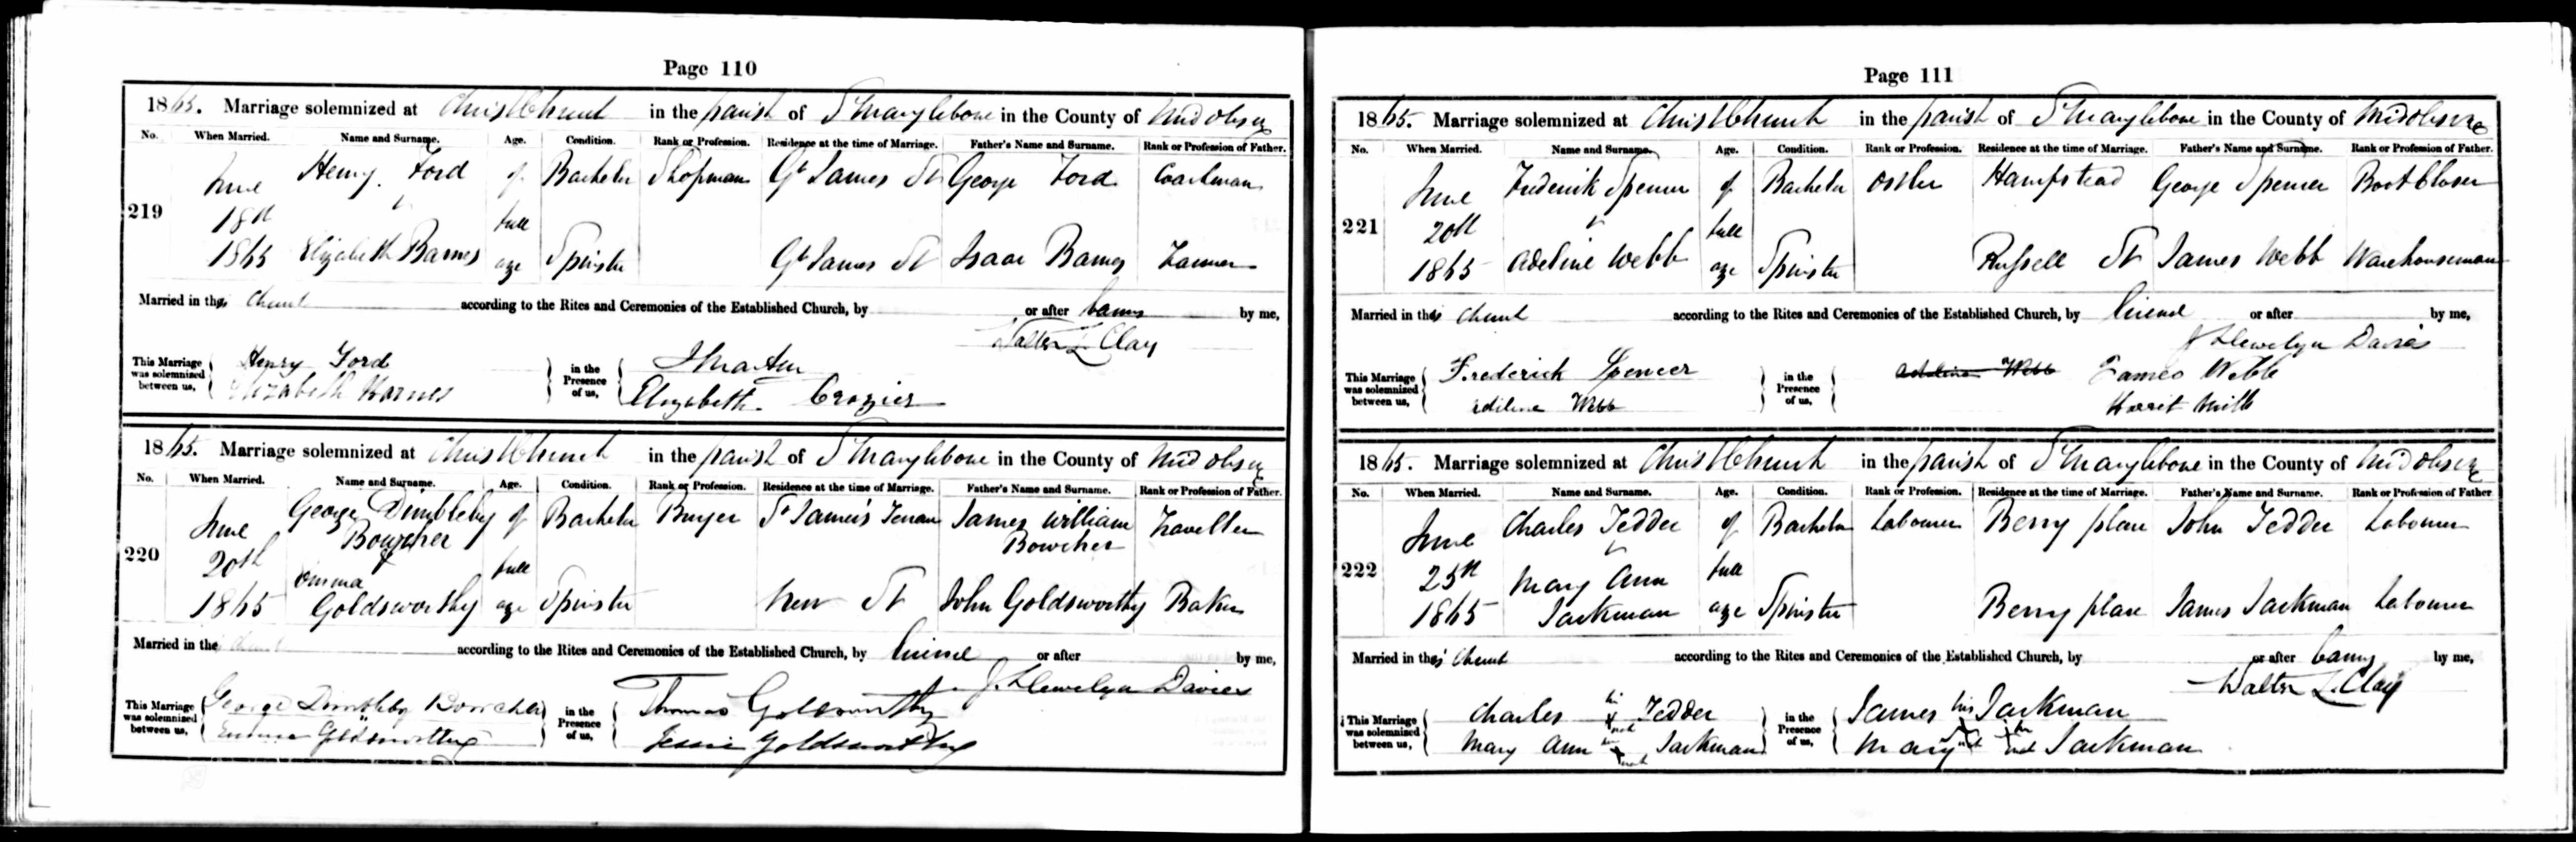 Page 110
1865. Marriage solemnized at Christ Church in the parish of St Marylebone in the County of Middlesex
No. When Married. Name and Surname. Age. Condition. Rank or Profession. Residence at the time of Marriage. Father's Name and Surname. Rank or Profession of Father.
219 June 18th 1865 Henry Ford of full age Bachelor Shopman Gt James St George Ford Coachman
Elizabeth Barnes Spinster Gt James St Isaac Barnes
Married in this Church according to the Rites and Ceremonies of the Established Church, by or after banns by me,
Walter L Clay
This Marriage was solemnized between us, Henry Ford in the Presence of us,
Elizabeth Barnes Elizabeth Crozier
1865. Marriage solemnized at Christ Church in the parish of St Marylebone in the County of Middlesex
No. When Married. Name and Surname. Age. Condition. Rank or Profession. Residence at the time of Marriage. Father's Name and Surname. Rank or Profession of Father.
220 June 20th 1865 George Dimbleby Bowcher of full age Bachelor Buyer St James's James William Bowcher Traveller
Emma Goldsworthy Spinster New St John Goldsworthy Baker
Married in the Church according to the Rites and Ceremonies of the Established Church, by license or after by me,
J. Llewelyn Davies
This Marriage was solemnized between us, George Dimbleby Bowcher in the Presence of us, Thomas Goldsworthy
Emma Goldsworthy Jessie Goldsworthy
Page 111
1865. Marriage solemnized at Christ Church in the parish of St Marylebone in the County of Middlesex
No. When Married. Name and Surname. Age. Condition. Rank or Profession. Residence at the time of Marriage. Father's Name and Surname. Rank or Profession of Father.
221 June 20th 1865 Frederick Spencer of full age Bachelor Ostler Hampstead George Spencer Boot Closer
Adeline Webb Spinster Russell St James Webb Warehouseman
Married in this Church according to the Rites and Ceremonies of the Established Church, by license or after by me,
J Llewelyn Davies
This Marriage was solemnized between us, Frederick Spencer in the Presence of us, Adeline Webb James Webb
Adeline Webb
1865. Marriage solemnized at Christ Church in the parish of St Marylebone in the County of Middlesex
No. When Married. Name and Surname. Age. Condition. Rank or Profession. Residence at the time of Marriage. Father's Name and Surname. Rank or Profession of Father.
222 June 25th 1865 Charles Tedder of full age Bachelor Labourer Berry place John Tedder Labourer
Mary Ann Jackman Spinster Berry place James Jackman Labourer
Married in this Church according to the Rites and Ceremonies of the Established Church, by or after banns by me,
Walter L. Clay
This Marriage was solemnized between us, Charles his x mark Tedder in the Presence of us, James his x mark Jackman
Mary Ann her x mark Jackman Mary her x mark Jackman